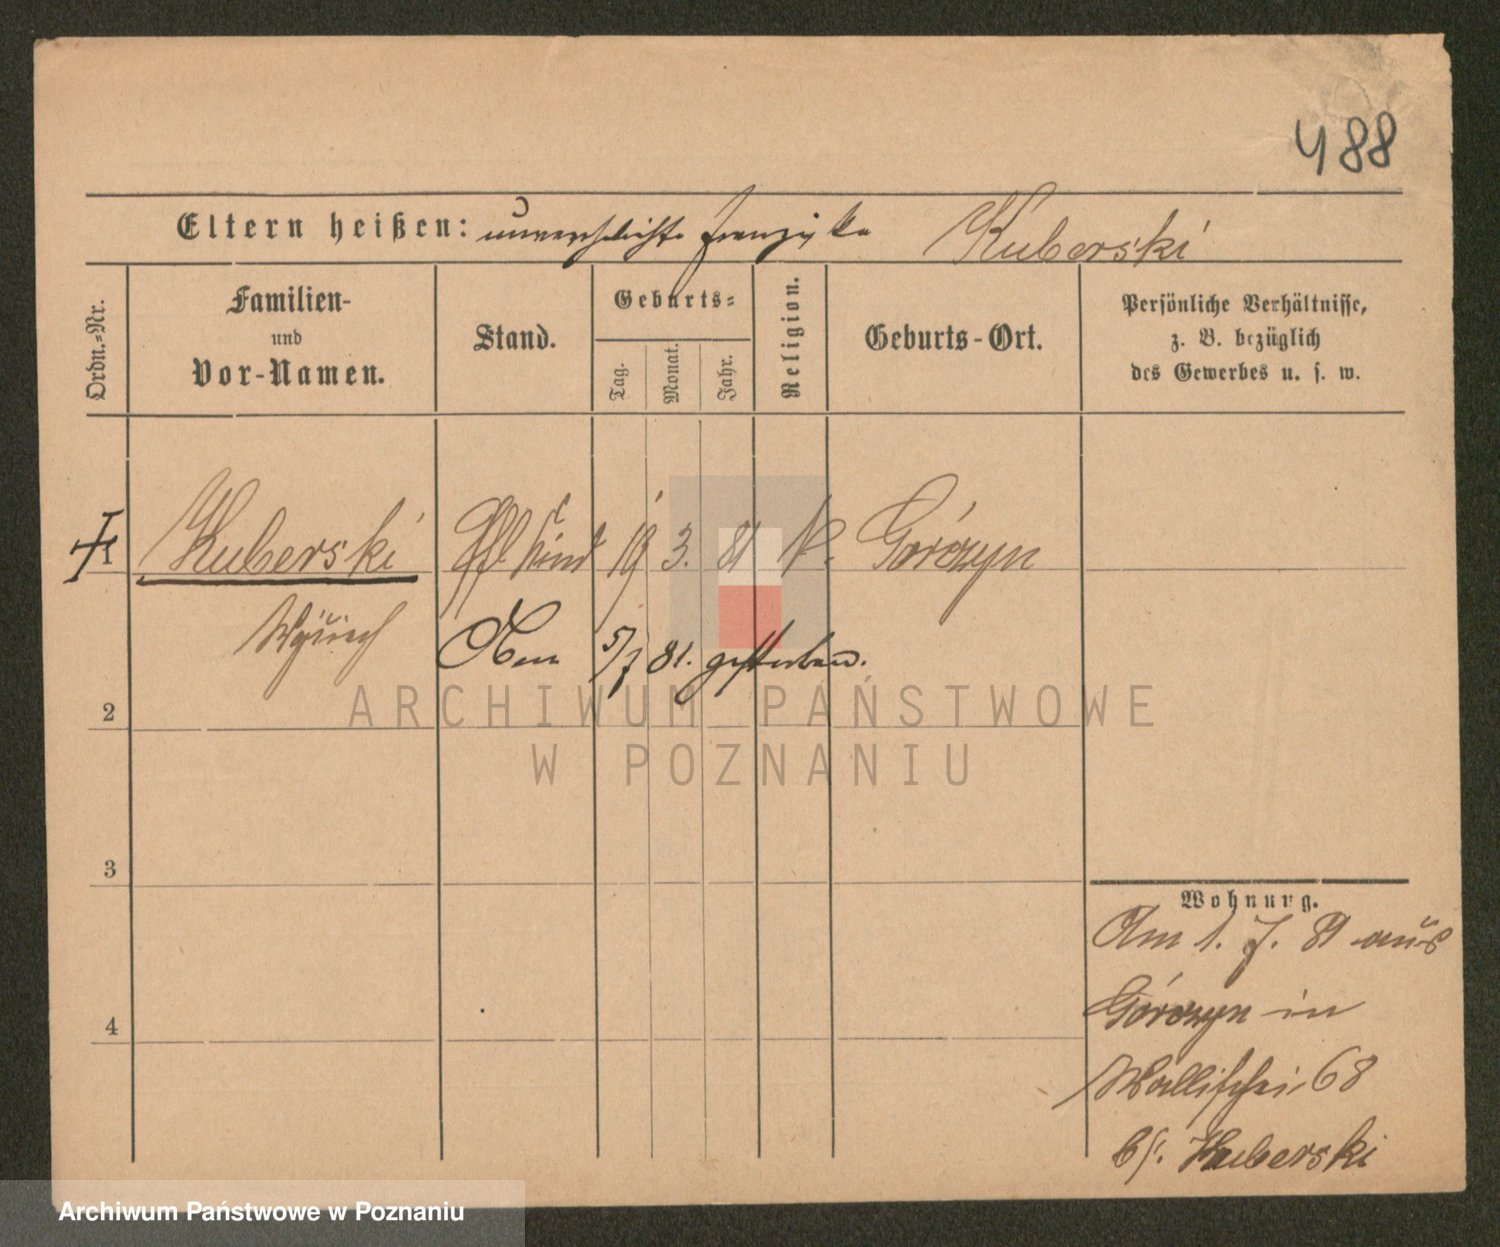 488
Eltern heißen: unverehelichte Franziska Kuberski
Ordn.-Nr.
Familien-
und
Vor-Namen.
Stand.
Geburts-
Tag.
Monat.
Jahr.
Religion.
Geburts-Ort.
Persönliche Verhältnisse,
z. B. bezüglich
des Gewerbes u. s. w.
1 Kuberski Pfl Kind 19 3. 81 k. Górczyn
Am 5/7 81. gestorben.
2
3
4
Wohnung.
Am 1. 7. 81 aus
Górczyn in
Wallischei 68
bſ. Kuberski
ARCHIWUM PAŃSTWOWE
W POZNANIU
Archiwum Państwowe w Poznaniu